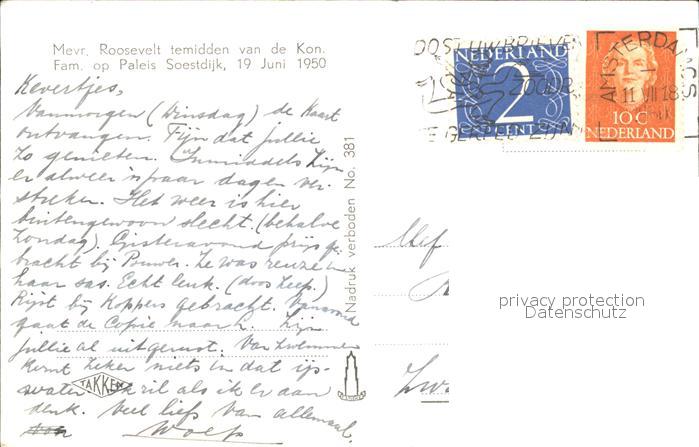 Mevr. Roosevelt temidden van de Kon.
Fam. op Paleis Soestdijk, 19 Juni 1950
Kevertjes,
Vanmorgen (Dinsdag) de kaart
ontvangen. Fijn dat jullie
zo genieten. Inmiddels zijn
er alweer 'n paar dagen ver-
streken. Het weer is hier
buitengewoon slecht. (behalve
Zondag). Gisteravond prijs ge-
bracht bij Pouwer. Ze was reuze in
haar sas. Echt leuk. (doos zeep.)
Rijst bij Koppers gebracht. Vanavond
gaat de Copie naar h. Zijn
jullie al uitgerust. Van zwemmen
komt zeker niets in dat ijs-
water. Ik ril als ik er aan
denk. Veel liefs van allemaal,
Nadruk verboden No. 381
TAKKEN
NEDERLAND
2
CENT
10 C
NEDERLAND
AMSTERDAM
11 VII 18
1950
Mej
Zw
privacy protection
Datenschutz